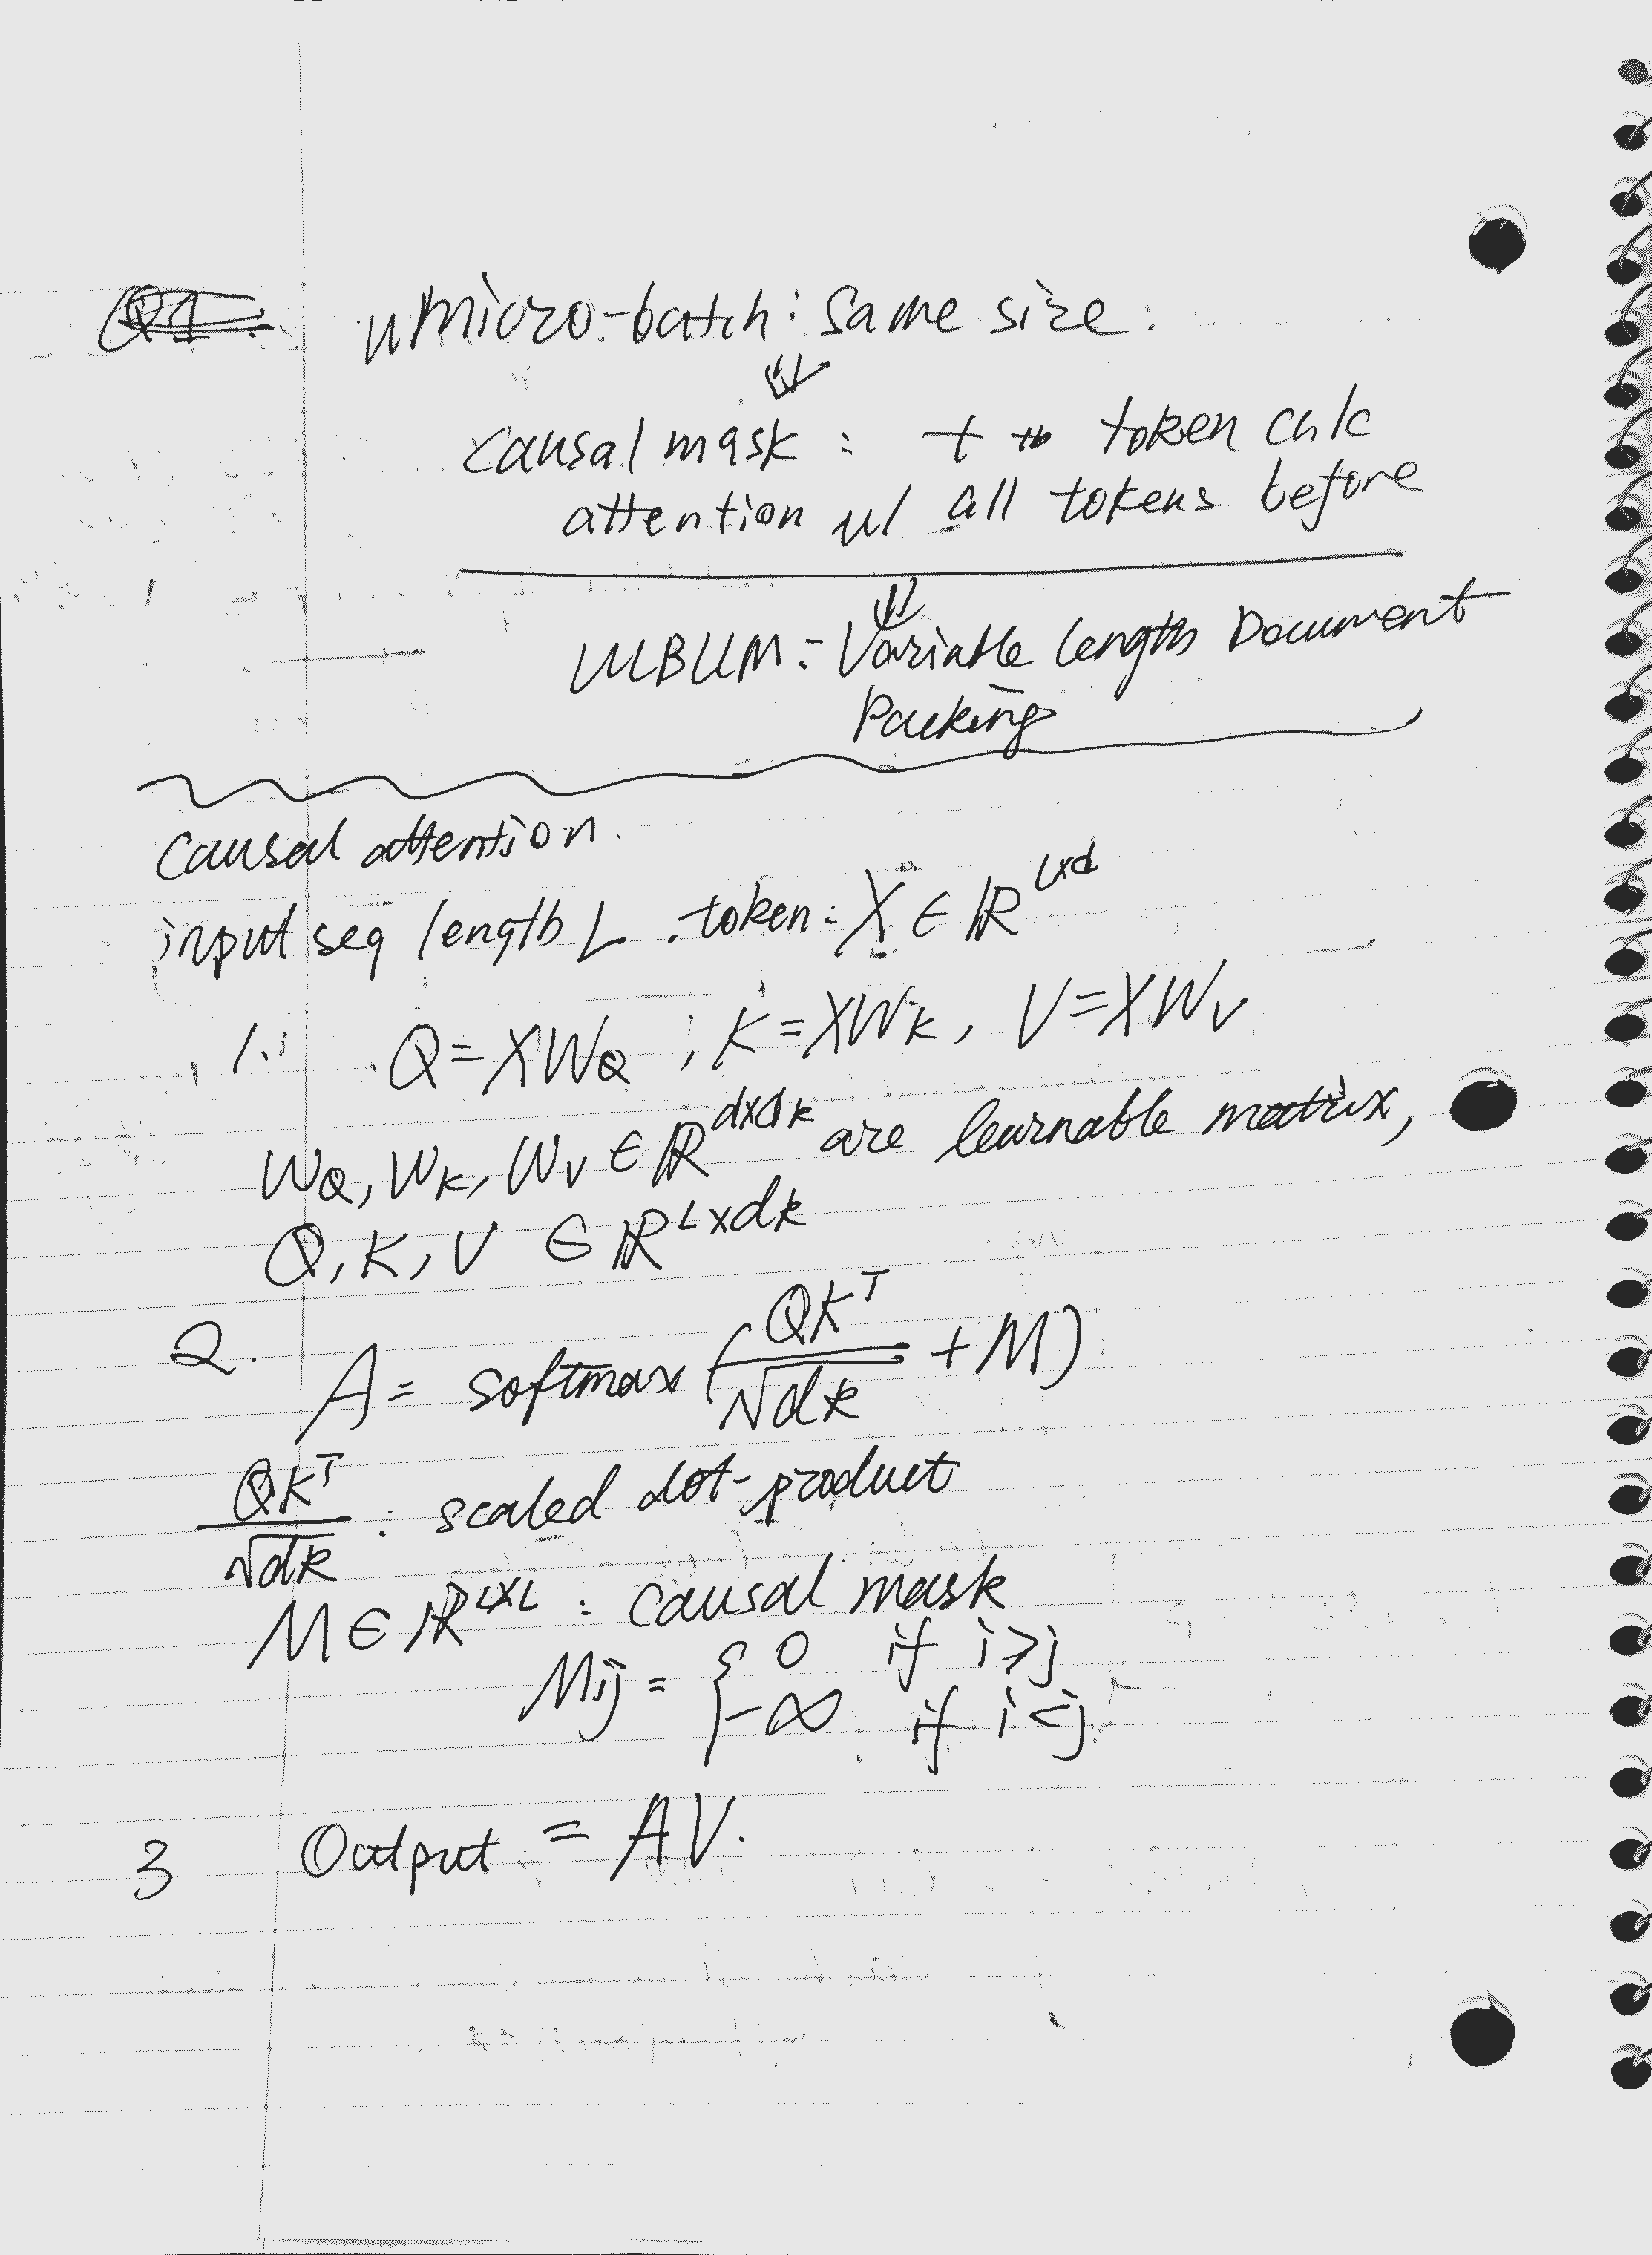 Micro-batch: same size.
⇓
causal mask: t th token calc
attention w/ all tokens before
⇓
WLBLLM: Variable length Document
Packing
Causal attention.
input seq length L. token: X ∈ ℝ^{L×d}
1. Q = XW_Q, K = XW_K, V = XW_V
W_Q, W_K, W_V ∈ ℝ^{d×dk} are learnable matrix,
Q, K, V ∈ ℝ^{L×dk}
2. A = softmax(QK^T/√dk + M)
QK^T/√dk : scaled dot-product
M ∈ ℝ^{L×L} : causal mask
Mij = { 0 if i≥j
-∞ if i<j
3 Output = AV.